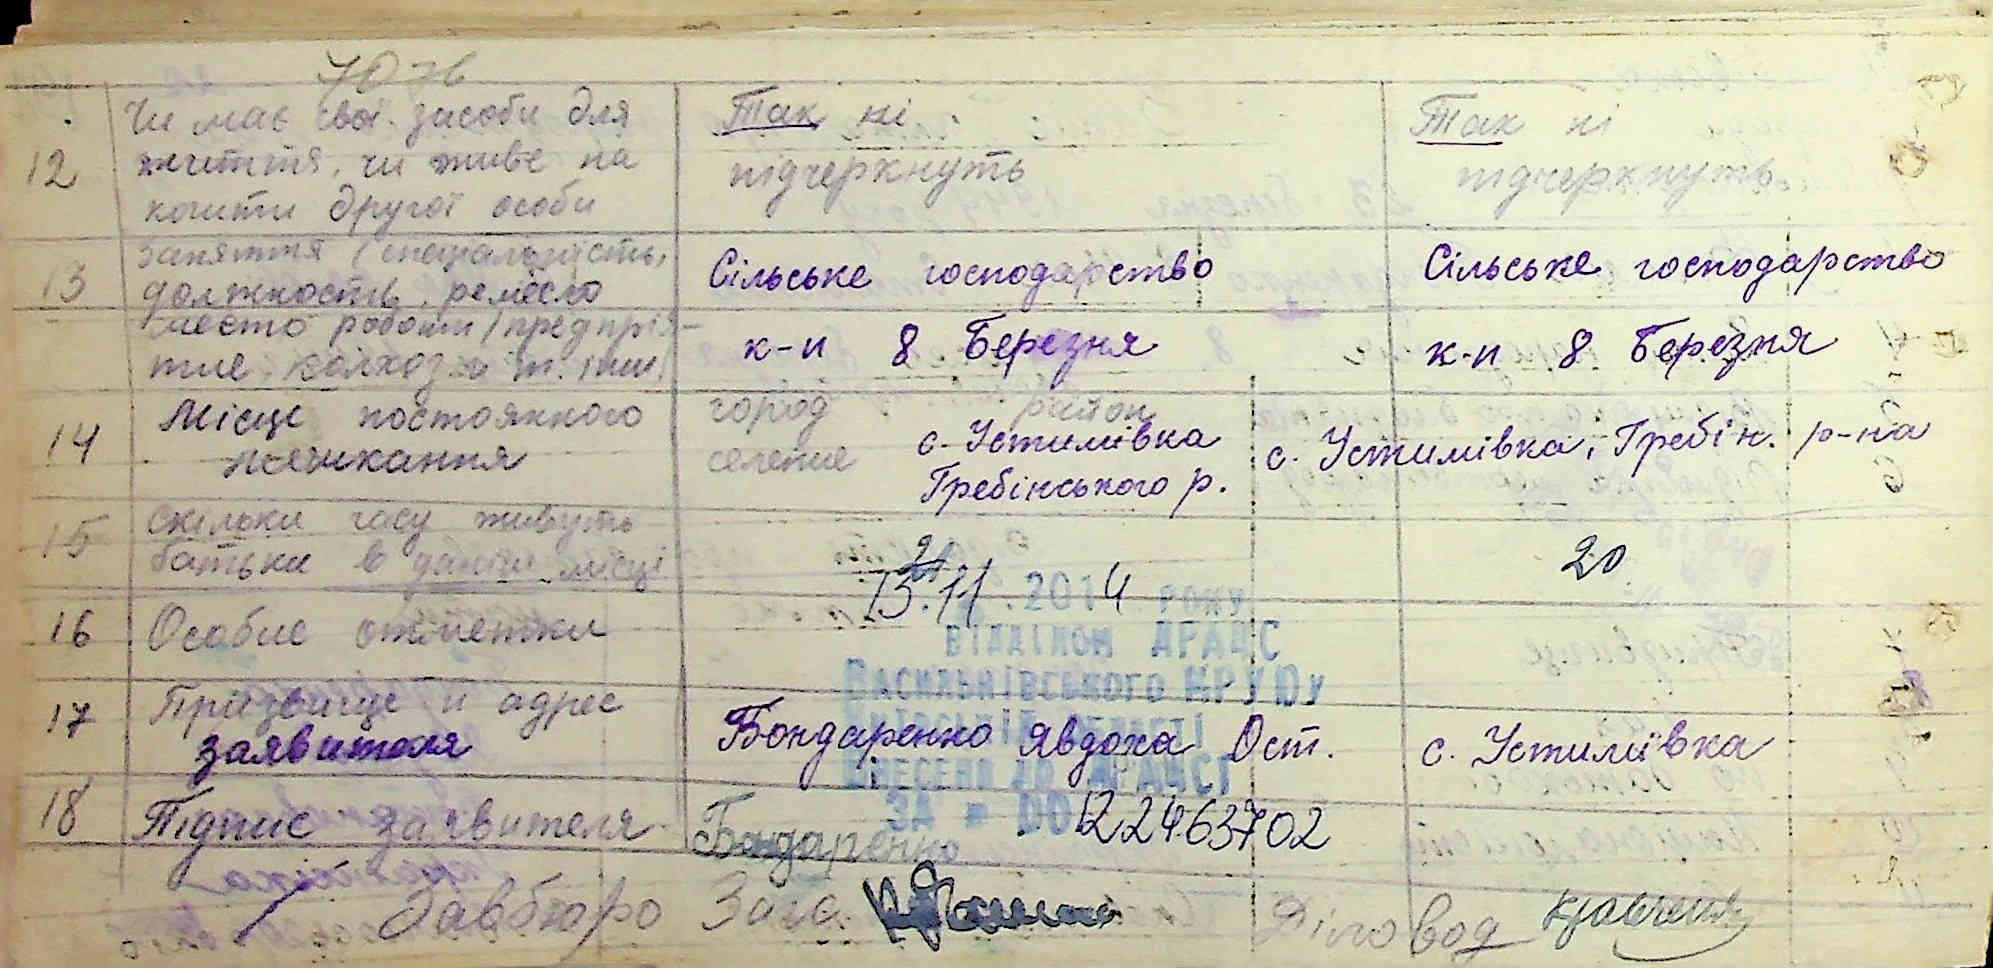 12 Чи має свої засоби для життя, чи живе на кошти другої особи
Так ні
підчеркнуть
Так ні
підчеркнуть
13 заняття (спеціальність, должность, ремесло
Сільське господарство
Сільське господарство
место роботи (предпрія-
тие, колхоз и т. інш.)
к-п 8 Березня
к-п 8 Березня
14 Місце постоянного
жешкання
город район
селение с. Устимівка
Гребінського р.
с. Устимівка, Гребін. р-на
15 Скільки часу живуть
батьки в даній місці
20
13.11.2014 РОКУ
ВІДДІЛОМ ДРАЦС
16 Особие отметки
ВАСИЛЬКІВСЬКОГО МРУЮ
КИЇВСЬКІЙ ОБЛАСТІ
17 Прізвище и адрес
заявителя
Бондаренко Явдоха Ост.
с. Устимівка
ВНЕСЕНА ДО ДРАЦСГ
ЗА № 00122463702
18 Підпис заявителя
Бондаренко
Завбюро Загс.
Діловод Кравченко